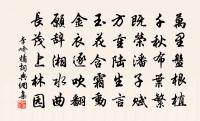 萬里盤根植
千秋布葉繁
既榮潘子賦
方重陸生言
玉花含霜動
金衣逐吹翻
願辭湘水曲
長茂上林园
李峤橘詞典網集